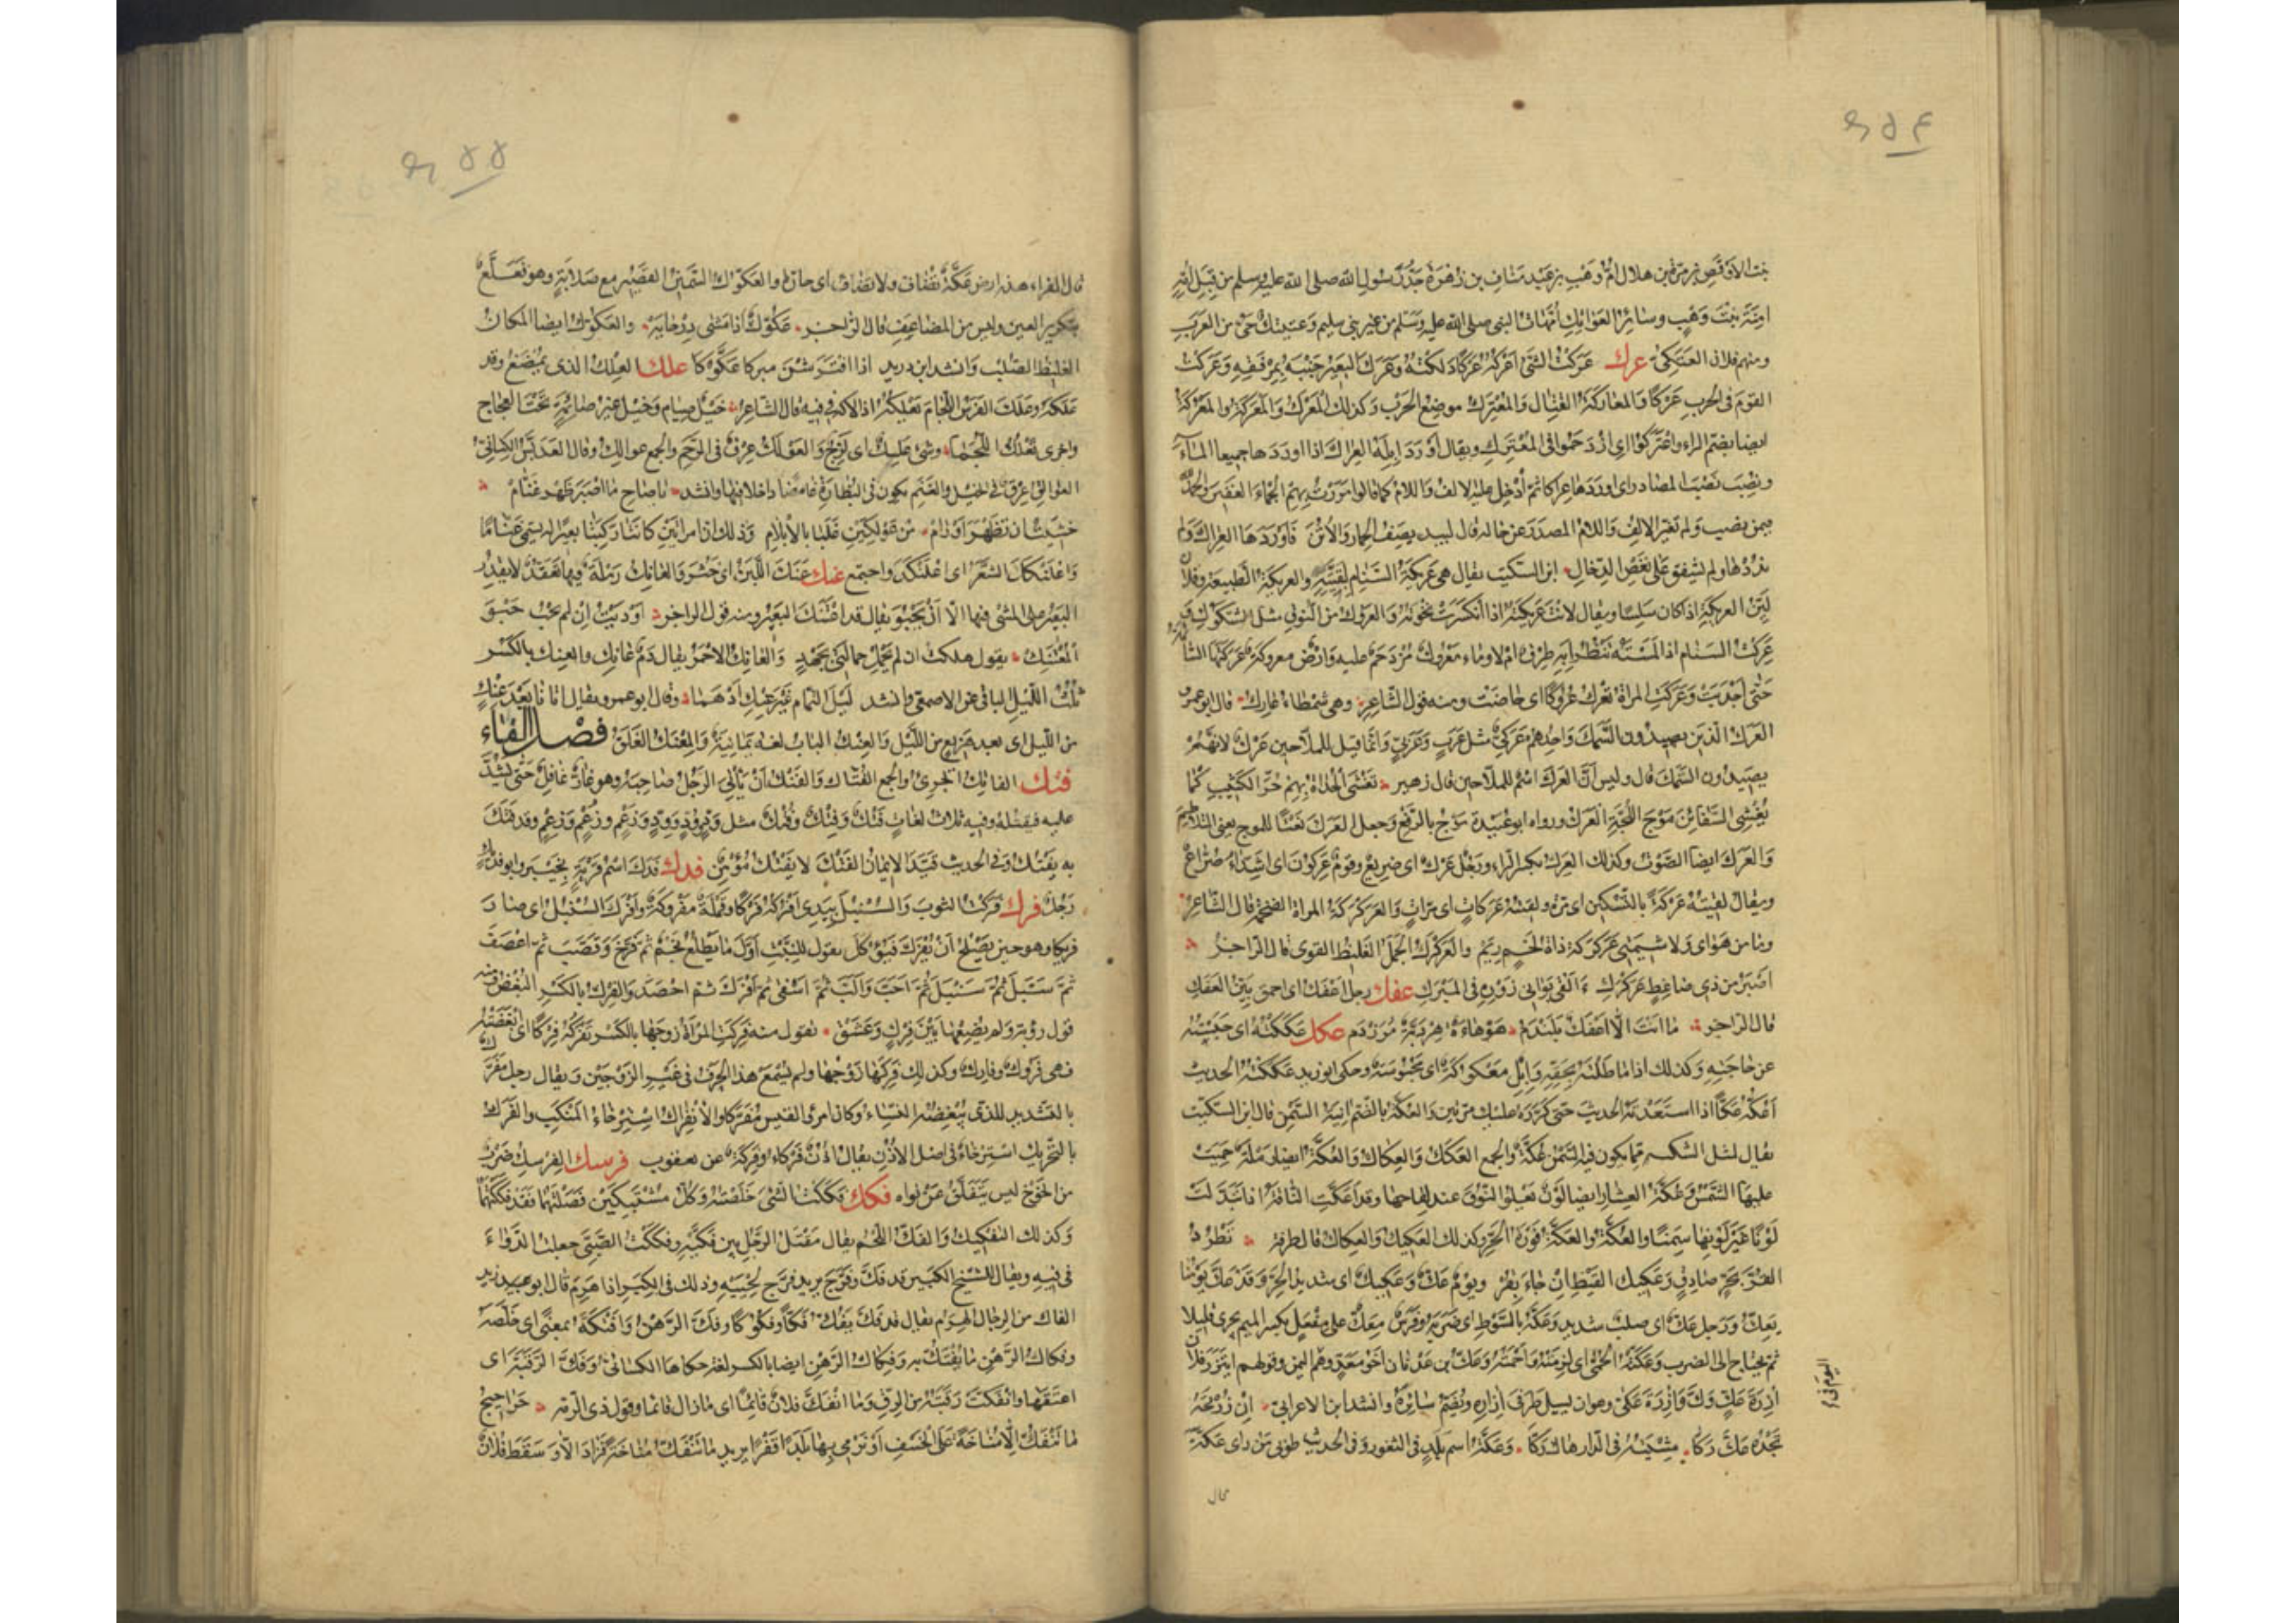 بنت الأوقص بن مرّة بن هلال امّ وهب بن عبد مناف بن زهرة جدّ رسول الله صلى الله عليه وسلم من قبل امّه
امنة بنت وهب وسائر العواتك امّهات النبى صلى الله عليه وسلم من غير بنى سليم وعتيك حىّ من العرب
ومنهم فلان العتكى عرك عركت الشئ اعركه عركا دلكته وعرك البعير جنبه بمرفقه وعركت
القوم فى الحرب عركا والمعاركة القتال والمعترك موضع الحرب وكذلك المعرك والمعركة والمعركة
ايضا بضم الراء واعتركوا اى ازدحموا فى المعترك ويقال أورد إبله العراك اذا اوردها جميعا الماء
ونصب نصب المصادر اى اوردها عراكا ثم أدخل عليه الالف واللام كما قالوا مررت بهم الجماء الغفير والحمد لله
فيمن نصب ولم تغير الالف واللام المصدر عن حاله قال لبيد يصف الحمار والأتن فأوردها العراك ولم
يذدها ولم يشفق على نغص الدخال ابن السكيت يقال هى عريكة السنام لبقيّته والعريكة الطبيعة وفلان
ليّن العريكة اذا كان سلسا ويقال لانت عريكته اذا انكسرت نخوته والعروك من النوق مثل الشكوك وقد
عركت السنام اذا لمسته تنظر أبه طرق ام لا وماء معروك مزدحم عليه وارض معروكة عركتها السائمة
حتى أجدبت وعركت المراة تعرك عروكا اى حاضت ومنه قول الشاعر وهى شمطاء عارك قال ابو عمرو
العرك الذين يصيدون السمك واحدهم عركى مثل عرب وعربى وانما قيل للملاحين عرك لانهم
يصيدون السمك قال وليس أن العرك اسم للملاحين قال زهير تغشى الحداة بهم حرّ الكثيب كما
يغشى السفائن موج اللجة العرك ورواه ابو عبيدة موج بالرفع وجعل العرك نعتا للموج يعنى المتلاطم
والعرك ايضا الصوت وكذلك العرك بكسر الراء ورجل عرك اى صريع وقوم عركون اى اشداء صراع
ويقال لقيته عركة بالتسكين اى مرة ولقيته عركات اى مرات والعركركة المراة الضخمة قال الشاعر
وما من هواى ولا شيمتى عركركة ذات لحم زيم والعركرك الجمل الغليظ القوى قال الراجز
اصبر من ذى ضاغط عركرك القى بوانى زوره فى المبرك عفك رجل اعفك اى احمق بين العفك
قال الراجز ما انت الا اعفك بلندم هوهاءة هردبة مزردم عكك عككته اى حبسته
عن حاجته وكذلك اذا ماطلته بحقه وابل معكوكة اى محبوسة وحكى ابو زيد عككته الحديث
أعكه عكا اذا استعدته الحديث حتى كرره عليك مرتين والعكة بالضم انية السمن قال ابن السكيت
يقال لمثل الشكوة مما يكون فيه السمن عكة والجمع العكك والعكاك والعكة ايضا رملة حميت
عليها الشمس وعكة العشار ايضا لون يعلو النوق عند لقاحها وقد اعكّت الناقة اذا تبدلت
لونا غير لونها سمنا والعكة والعكة فورة الحر وكذلك العكيك والعكاك قال طرفة تطرد
القر بحر صادق وعكيك القيظ ان جاء بقر ويوم عك وعكيك اى شديد الحر وقد عك يومنا
يعك ورجل عك اى صلب شديد وعكه بالسوط اى ضربه وفرس معك على مفعل بكسر الميم يجرى قليلا
ثم يحتاج الى الضرب وعكته الحمى اى لزمته واحمته وعك بن عدنان اخو معد وهو اليوم فى اليمن وقولهم ايتزر فلان
ازرة عك وك وازرة عكى وهو ان يسبل طرفى ازاره ويضم سائره وانشد ابن الاعرابى ان زرته
تجده عك ركا مشيته فى الدار هاك ركا وعكة اسم بلد فى الثغور وفى الحديث طوبى لمن راى عكة
قال
قال الفراء هذه ارض عكة تضاف ولا تضاف اى حارة والعكوك السمين القصير مع صلابة وهو فعلع
بتكرير العين وليس من المضاعف قال الراجز عكوك اذا مشى درحايه والعكوك ايضا المكان
الغليظ الصلب وانشد ابن دريد اذا افترشن مبركا عكوكا علك العلك الذى يمضغ وقد
علكه وعلك الفرس اللجام تعلكه اذا لاكه فى فيه قال الشاعر خيل صيام وخيل غير صائمة تحت العجاج
واخرى تعلك اللجما وشئ علك اى لزج والعولك عرق فى الرحم والجمع عوالك وقال العدبس الكنانى
العوالق عرق فى الخيل والغنم يكون فى البظارة غامضا داخلا فيها وانشد يا صاح ما اصبر ظهر غنام
خشيت ان تظهر أورام من عولكين غلبا بالأبلام وذلك ان امراتين كانتا ركبتا بعيرا له يسمى غناما
واعلنكك الشعر اى اعلنكد واجتمع عنك عنك اللبن اى خثر والعانك رملة فيها تعقد لا يقدر
البعير على المشى فيها الا أن يحبو يقال قد اعتنك البعير ومنه قول الراجز اوديت ان لم تحب حبو
المعتنك يقول هلكت ان لم تحمل حمالتى بجهد والعانك الاحمر يقال دم عانك والعنك بالكسر
ثلث الليل الباقى عن الاصمعى وانشد ليل التمام غير عنك أدهما وقال ابو عمرو يقال اتانا بعد عنك
من الليل اى بعد هزيع من الليل والعنك الباب لغة يمانية والمعنك الغلق فصل الفاء
فتك الفاتك الجرئ والجمع الفتاك والفتك أن يأتى الرجل صاحبه وهو غار غافل حتى يشد
عليه فيقتله وفيه ثلاث لغات فتك وفتك وفتك مثل ود وود وود وزعم وزعم وزعم وقد فتك
به يفتك وفى الحديث قيد الايمان الفتك لا يفتك مؤمن فدك فدك اسم قرية بخيبر وابو فديك
رجل فرك فركت الثوب والسنبل بيدى افركه فركا وقملة مفروكة وافرك السنبل اى صار
فريكا وهو حين يصلح ان يفرك فيؤكل يقول للنبت اول ما يطلع نجم ثم فرخ وقصب ثم اعصف
ثم سبل ثم سنبل ثم احب والب ثم اسفى ثم افرك ثم احصد والفرك بالكسر البغض ومنه
قول رؤبة ولم يضعها بين فرك وعشق تقول منه فركت المراة زوجها بالكسر تفركه فركا اى ابغضته
فهى فروك وفارك وكذلك فركها زوجها ولم يسمع هذا الحرف فى غير الزوجين ويقال رجل مفرك
بالتشديد للذى يبغضه النساء وكان امرؤ القيس مفركا والانفراك استرخاء المنكب والفرك
بالتحريك استرخاء فى اصل الاذن يقال اذن فركاء وفركة عن يعقوب فرسك الفرسك ضرب
من الخوخ ليس يتفلق عن نواه فكك فككت الشئ خلصته وكل مشتبكين فصلتهما فقد فككتهما
وكذلك التفكيك والفك اللحى يقال مقتل الرجل بين فكيه وفككت الصبى جعلت الدواء
فى فيه ويقال للشيخ الكبير قد فك وفرج يريد فرج لحييه وذلك فى الكبر اذا هرم قال ابو عبيد زيد
الفاك من الرجال الهرم يقال قد فك يفك فكا وفكوكا وفك الرهن وافتكه بمعنى اى خلصه
وفكاك الرهن ما يفتك به وفكاك الرهن ايضا بالكسر لغة حكاها الكسائى وفك الرقبة اى
اعتقها وانفكت رقبته من الرق وما انفك فلان قائما اى ما زال قائما وقول ذى الرمة حراجيج
ما تنفك الا مناخة على الخسف او نرمى بها بلدا قفرا يريد ما تنفك مناخة فزاد الا وسقط فلان